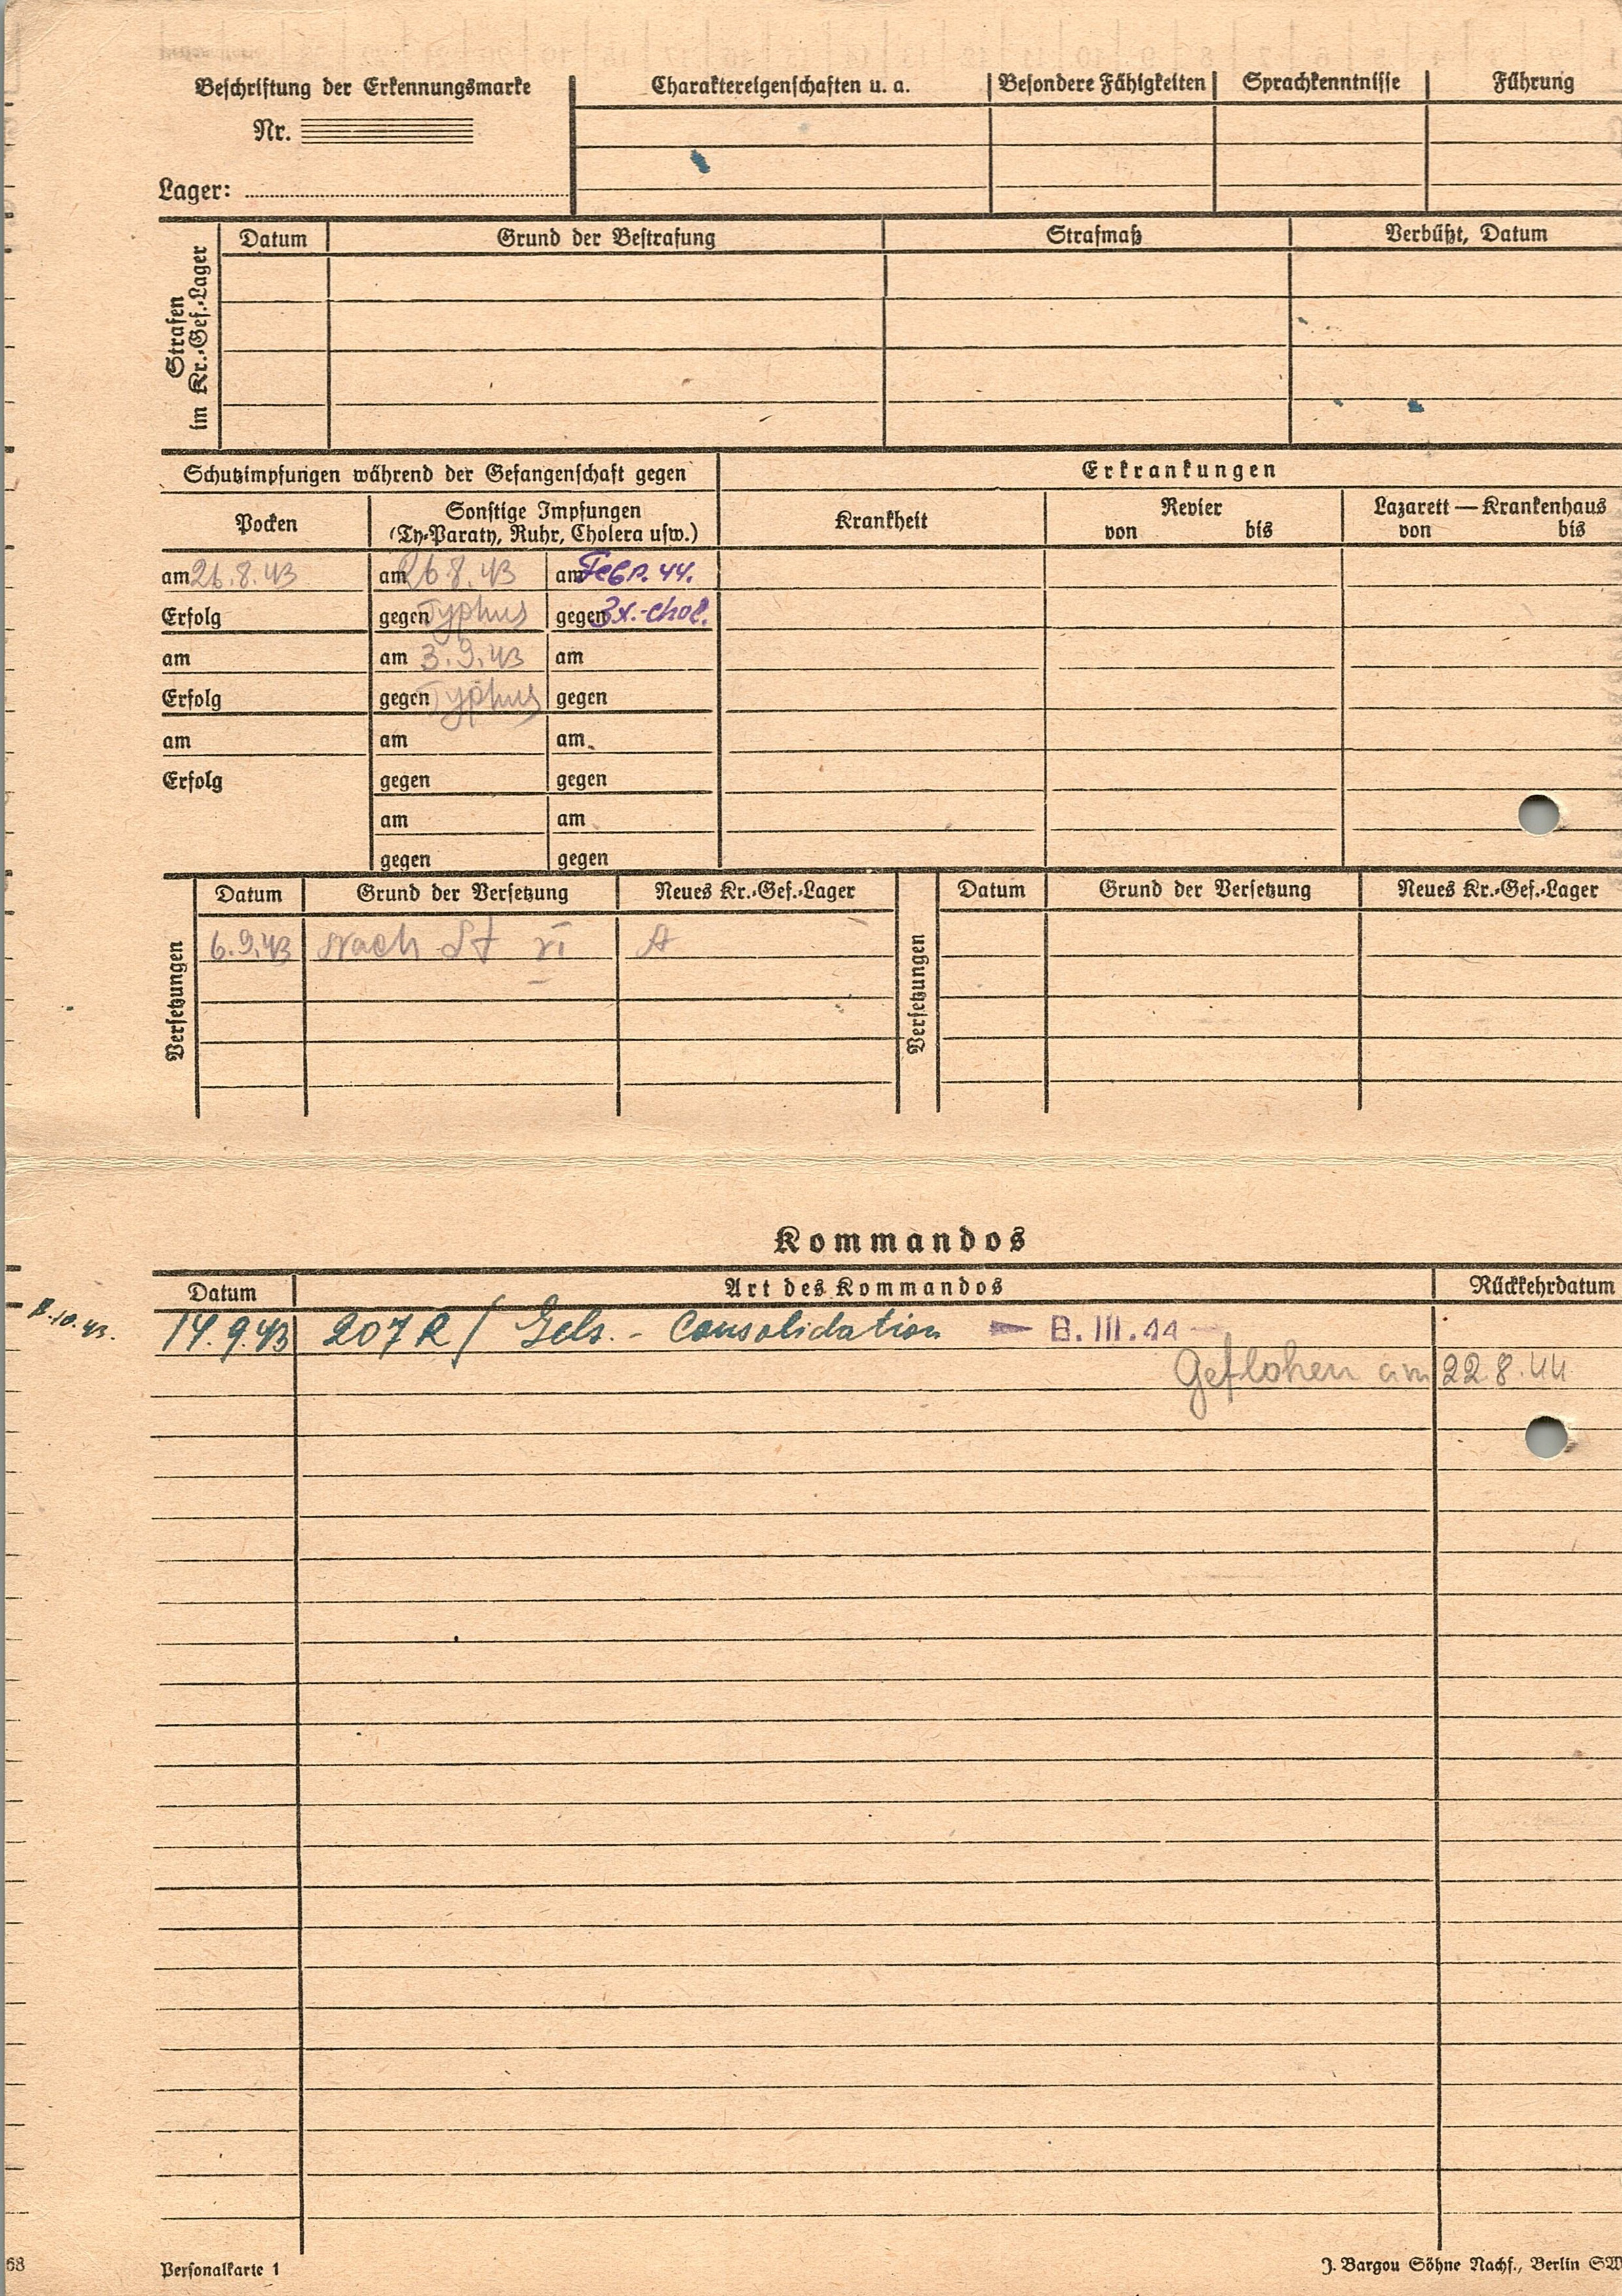 Beschriftung der Erkennungsmarke
Nr.
Lager:
Charaktereigenschaften u. a.
Besondere Fähigkeiten
Sprachkenntnisse
Führung
Strafen
im Kr.-Gef.-Lager
Datum
Grund der Bestrafung
Strafmaß
Verbüßt, Datum
Schutzimpfungen während der Gefangenschaft gegen
Erkrankungen
Pocken
Sonstige Impfungen
(Ty-Paraty, Ruhr, Cholera usw.)
Krankheit
Revier
von bis
Lazarett — Krankenhaus
von bis
am 26.8.43 am 26.8.43 am Febr. 44.
Erfolg gegen Typhus gegen 3x.-chol.
am am 3.9.43 am
Erfolg gegen Typhus gegen
am am am
Erfolg gegen gegen
am am
gegen gegen
Versetzungen
Datum Grund der Versetzung Neues Kr.-Gef.-Lager
6.9.43 Nach St VI A
Versetzungen
Datum Grund der Versetzung Neues Kr.-Gef.-Lager
Kommandos
Datum Art des Kommandos Rückkehrdatum
14.9.43 207 R / Gels. - Consolidation — B. III. 44 —
Geflohen am 22.8.44
Personalkarte 1
J. Bargou Söhne Nachf., Berlin SW